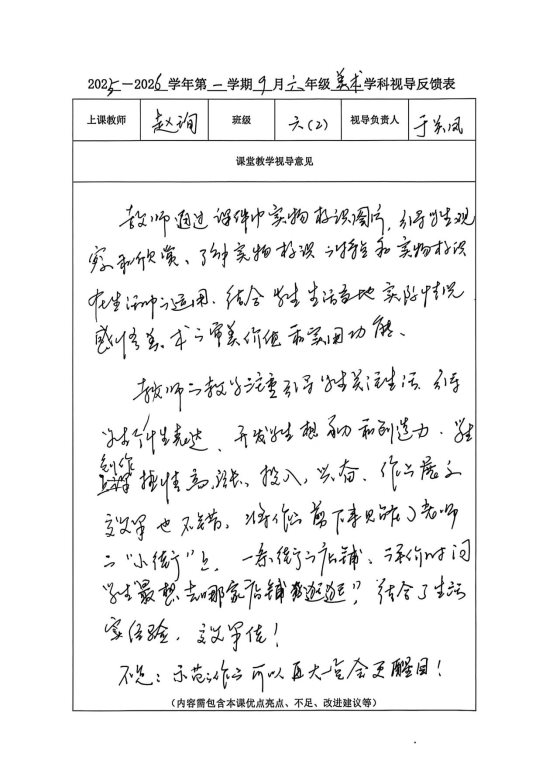 2025—2026学年第一学期9月六年级美术学科视导反馈表
上课教师 赵询 班级 六(2) 视导负责人 于关凤
课堂教学视导意见
教师通过课件中实物标识图片，引导学生观
察和欣赏、了解实物标识的特征和实物标识
在生活中的运用。结合学生生活当地实际情况
感悟美术之审美价值和实用功能。
教师的教学注重引导学生关注生活，引导
学生表达，开发学生想象力和创造力。学生
创作
积极性高涨，投入，兴奋，作品展示
效果也不错，将作品剪下来贴在了老师
的“小街”上，一条街的店铺，课尾时问
学生“最想去哪家店铺逛逛”，结合了生活
实经验，效果佳！
不足：示范作品可以再大一点会更醒目！
(内容需包含本课优点亮点、不足、改进建议等)